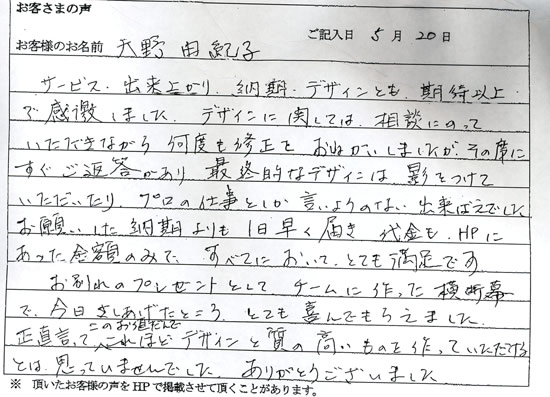 お客さまの声
ご記入日 5月20日
お客様のお名前 天野由紀子
サービス、出来上がり、納期、デザインとも、期待以上
で感激しました。デザインに関しては、相談にのって
いただきながら何度も修正をおねがいしましたが、その度に
すぐご返答があり最終的なデザインは影をつけて
いただいたり、プロの仕事としか言いようのない出来ばえでした。
お願いした納期よりも1日早く届き代金も、HPに
あった金額のみで、すべてにおいて、とても満足です
お別れのプレゼントとしてチームに作った横断幕
で、今日さしあげたところ、とても喜んでもらえました。
このお値だんで
正直言って、これほどデザインと質の高いものを作っていただける
とは、思っていませんでした。ありがとうございました。
※ 頂いたお客様の声をHPで掲載させて頂くことがあります。